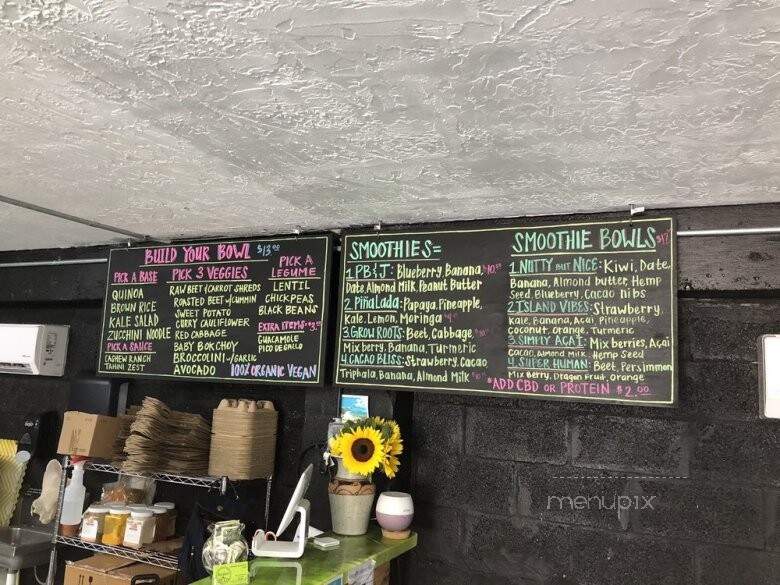 BUILD YOUR BOWL $13.00
PICK A BASE
QUINOA
BROWN RICE
KALE SALAD
ZUCCHINI NOODLE
PICK A SAUCE
CASHEW RANCH
TAHINI ZEST
PICK 3 VEGGIES
RAW BEET/CARROT SHREDS
ROASTED BEET W/CUMMIN
SWEET POTATO
CURRY CAULIFLOWER
RED CABBAGE
BABY BOK CHOY
BROCCOLINI/GARLIC
AVOCADO
PICK A
LEGUME
LENTIL
CHICKPEAS
BLACK BEANS
EXTRA ITEMS
GUACAMOLE
PICO DE GALLO
100% ORGANIC VEGAN
SMOOTHIES=
1.PB&J: Blueberry, Banana,
Date, Almond Milk, Peanut Butter
2.Piñalada: Papaya, Pineapple,
Kale, Lemon, Moringa
3.GROW ROOTS: Beet, Cabbage,
Mix berry, Banana, Turmeric
4.CACAO BLISS: Strawberry, Cacao
Triphala, Banana, Almond Milk
SMOOTHIE BOWLS
1.NUTTY BUT NICE: Kiwi, Date,
Banana, Almond butter, Hemp
Seed, Blueberry, Cacao nibs
2.ISLAND VIBES: Strawberry,
Kale, Banana, Açai, Pineapple,
coconut, Orange, Turmeric
3.SIMPLY AÇAI: Mix berries, Açai
Cacao, Almond Milk, Hemp Seed
4.SUPER HUMAN: Beet, Persimmon
Mix Berry, Dragon Fruit, Orange
*ADD CBD OR PROTEIN $2.00
menupix